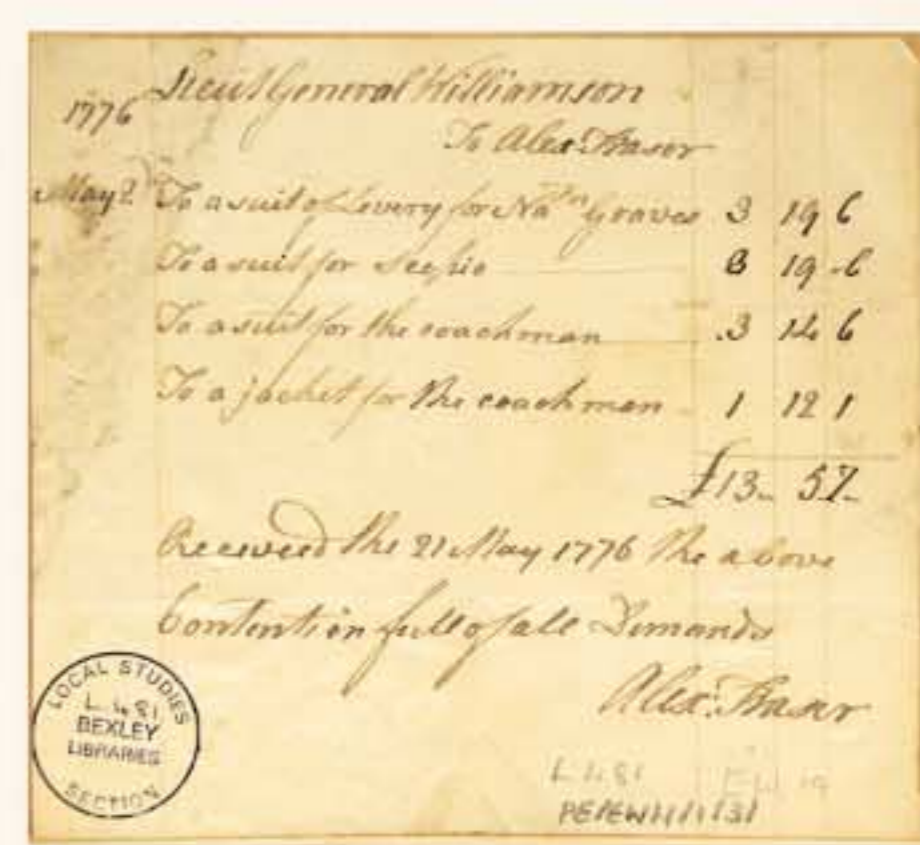 Lieut General Williamson
1776
To Alex: Fraser
May 2 To a suit of Livery for Na^th^n Graves 3 19 6
To a suit for Scipio 3 19 -6
To a suit for the coachman 3 14 6
To a jacket for the coachman - 1 12 1
£13- 5 7-
Received the 21 May 1776 the above
Content in full of all Demands
Alex: Fraser
LOCAL STUDIES
L.481
BEXLEY
LIBRARIES
SECTION
L481